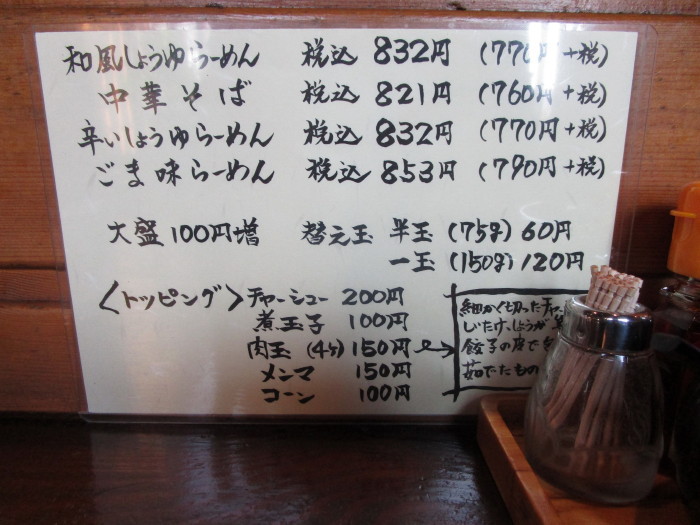 和風しょうゆらーめん 税込 832円 (770円+税)
中華そば 税込 821円 (760円+税)
辛いしょうゆらーめん 税込 832円 (770円+税)
ごま味らーめん 税込 853円 (790円+税)
大盛100円増 替え玉 半玉 (75g) 60円
一玉 (150g) 120円
〈トッピング〉チャーシュー 200円
煮玉子 100円
肉玉 (4ヶ) 150円
メンマ 150円
コーン 100円
細かく切ったチャー
しいたけ、しょうが
餃子の皮で
茹でたもの